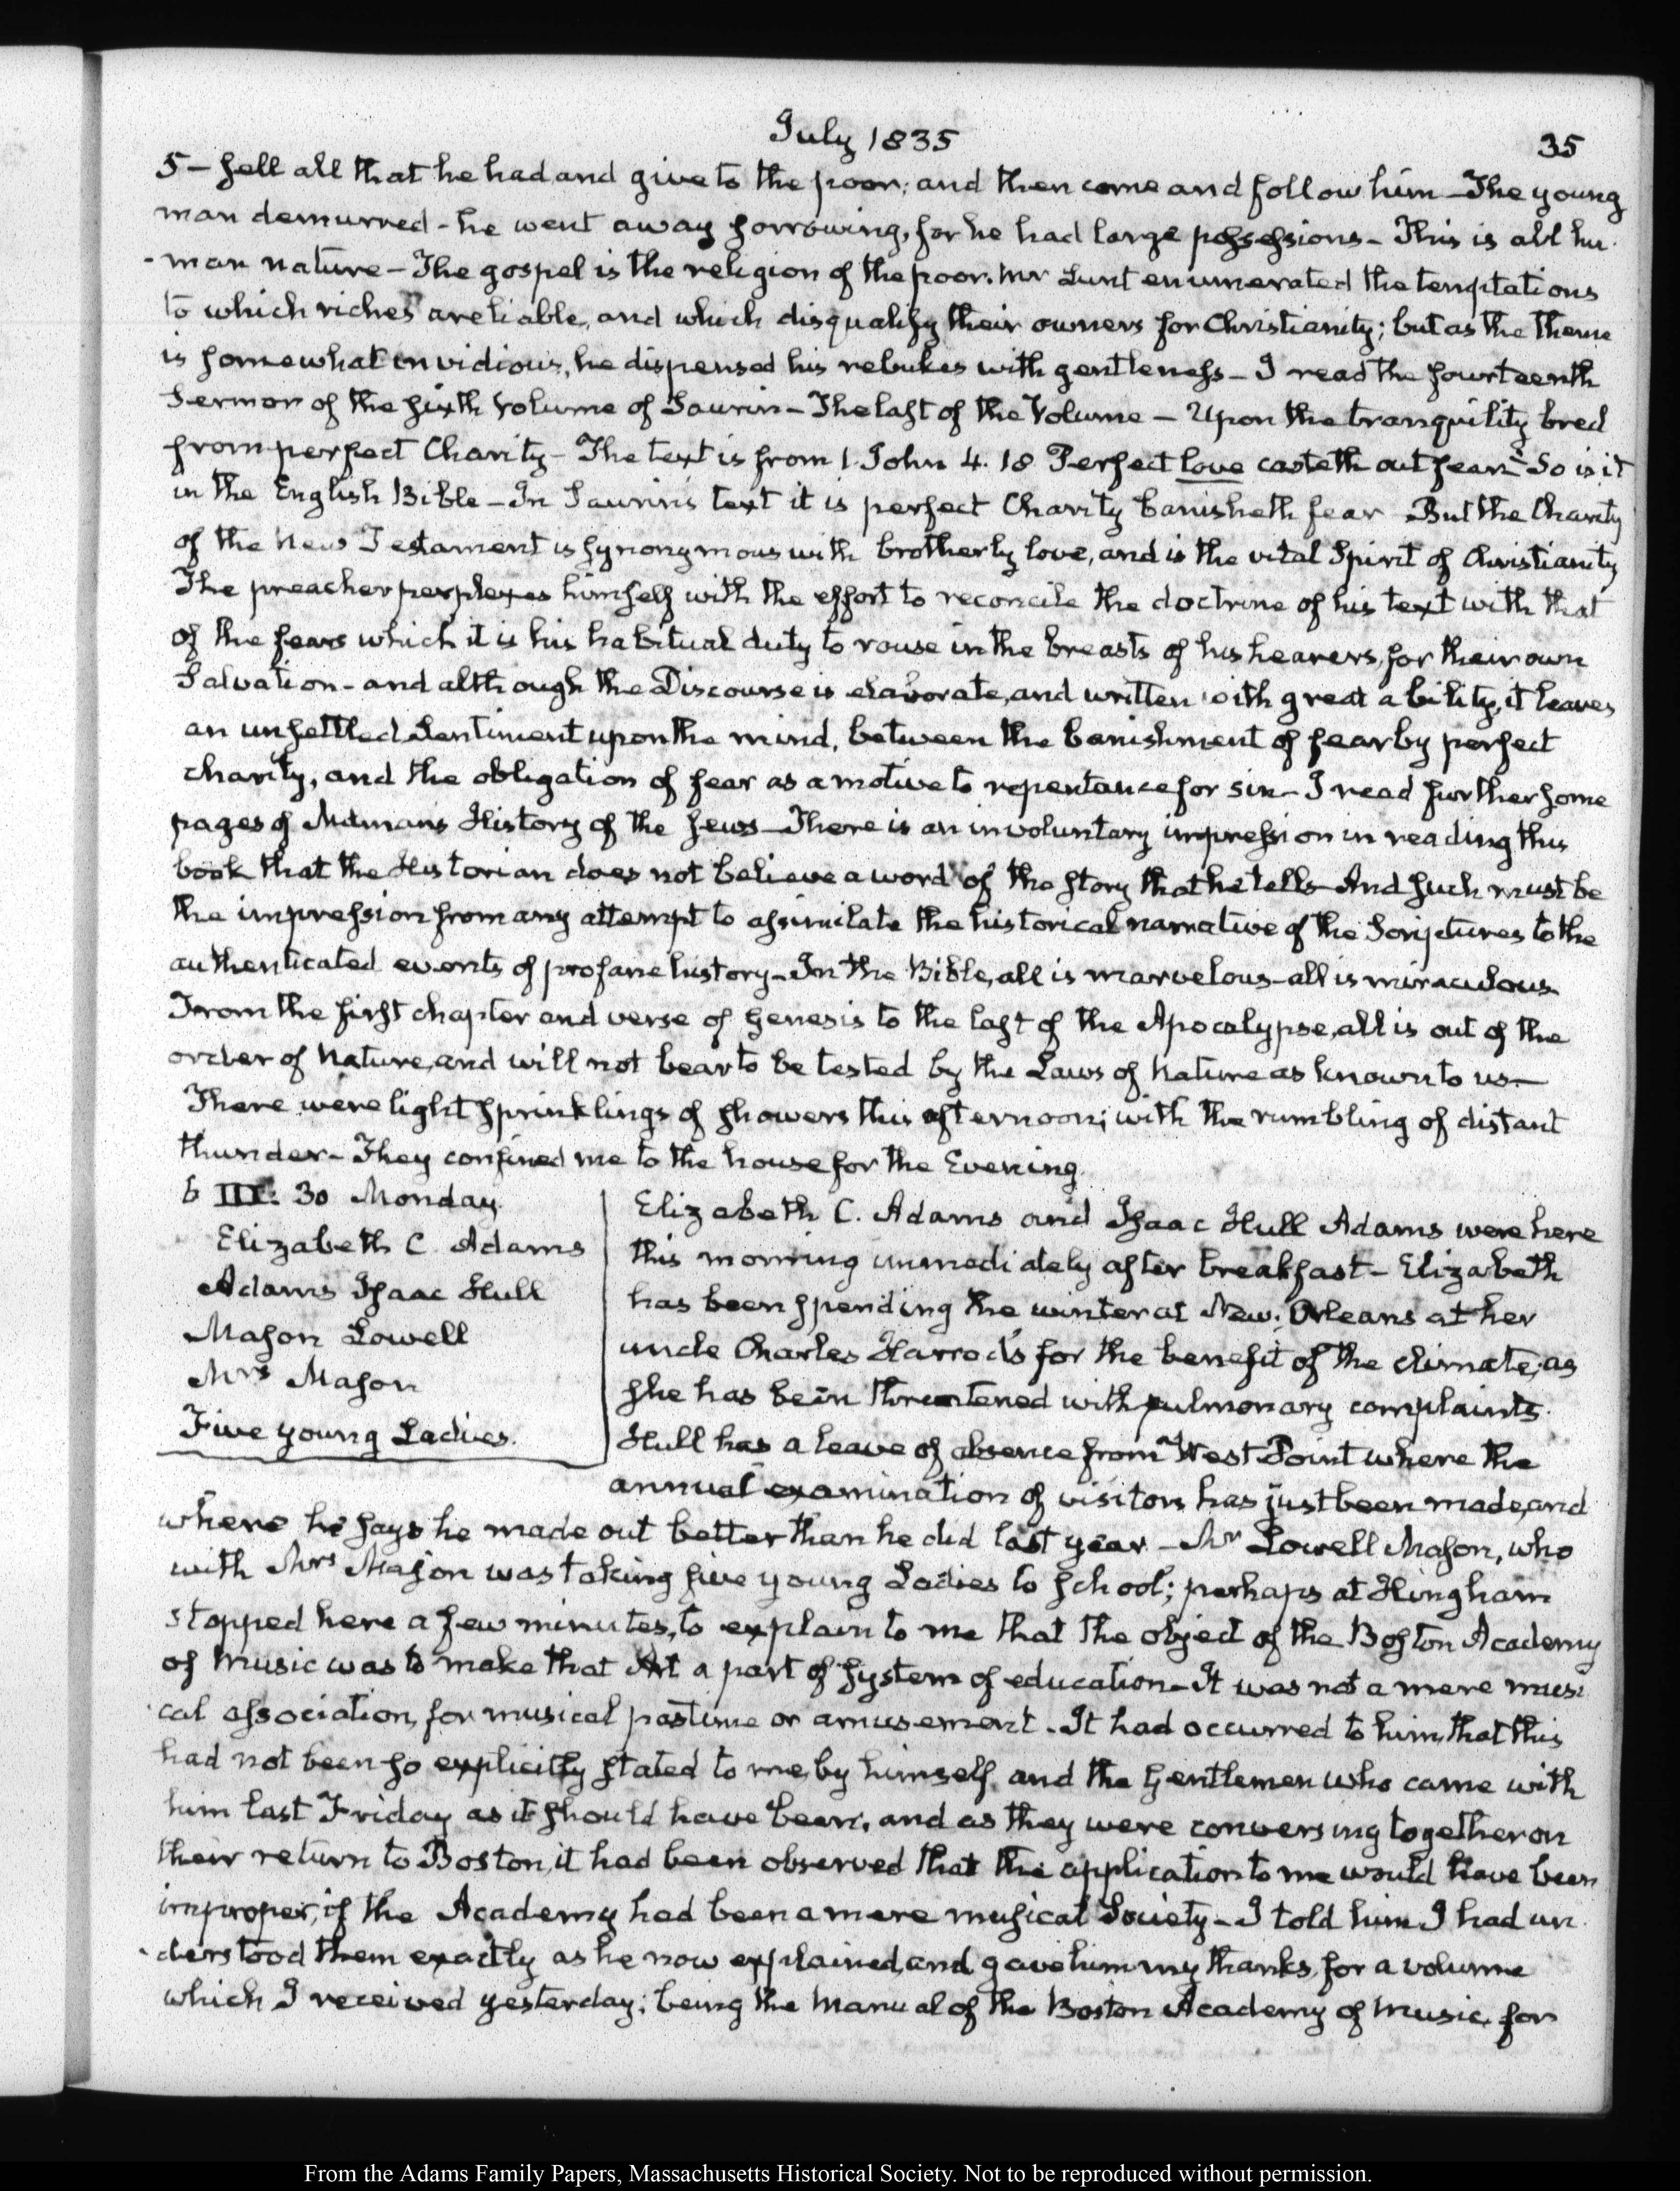 July 1835
35
5 – sell all that he had and give to the poor; and then come and follow him – The young
man demurred – he went away sorrowing, for he had large possessions – This is all hu-
-man nature – The gospel is the religion of the poor. Mr Lunt enumerated the temptations
to which riches are liable, and which disqualify their owners for Christianity; but as the theme
is somewhat invidious, he dispensed his rebukes with gentleness – I read the fourteenth
Sermon of the sixth Volume of Saurin – The last of the Volume – Upon the tranquility bred
from perfect Charity – The text is from 1. John 4. 18 Perfect love casteth out fear – So is it
in the English Bible – In Saurin's text it is perfect Charity banisheth fear – But the Charity
of the New Testament is synonymous with brotherly love, and is the vital Spirit of Christianity
The preacher perplexes himself with the effort to reconcile the doctrine of his text with that
of the fears which it is his habitual duty to rouse in the breasts of his hearers, for their own
Salvation – and although the Discourse is elaborate, and written with great ability, it leaves
an unsettled Sentiment upon the mind, between the banishment of fear by perfect
charity, and the obligation of fear as a motive to repentance for sin – I read further some
pages of Milman's History of the Jews – There is an involuntary impression in reading this
book that the Historian does not believe a word of the story that he tells – And such must be
the impression from any attempt to assimilate the historical narrative of the Scriptures to the
authenticated events of profane history – In the Bible, all is marvelous – all is miraculous
From the first chapter and verse of Genesis to the last of the Apocalypse, all is out of the
order of Nature, and will not bear to be tested by the Laws of Nature as known to us –
There were light sprinklings of showers this afternoon; with the rumbling of distant
thunder – They confined me to the house for the Evening.
6 III: 30 Monday.
Elizabeth C. Adams
Adams Isaac Hull
Mason Lowell
Mrs Mason
Five young Ladies.
Elizabeth C. Adams and Isaac Hull Adams were here
this morning immediately after breakfast – Elizabeth
has been spending the winter at New-Orleans at her
uncle Charles Harrod's for the benefit of the climate; as
she has been threatened with pulmonary complaints.
Hull has a leave of absence from West Point where the
annual examination of visitors has just been made, and
where he says he made out better than he did last year – Mr Lowell Mason, who
with Mrs Mason was taking five young Ladies to school; perhaps at Hingham
stopped here a few minutes, to explain to me that the object of the Boston Academy
of Music was to make that Art a part of system of education – It was not a mere musi-
-cal association, for musical pastime or amusement – It had occurred to him, that this
had not been so explicitly stated to me, by himself, and the Gentlemen who came with
him last Friday as it should have been, and as they were conversing together on
their return to Boston, it had been observed that the application to me would have been
improper, if the Academy had been a mere musical Society – I told him I had un-
-derstood them exactly as he now explained, and gave him my thanks, for a volume
which I received yesterday; being the Manual of the Boston Academy of Music, for
From the Adams Family Papers, Massachusetts Historical Society. Not to be reproduced without permission.